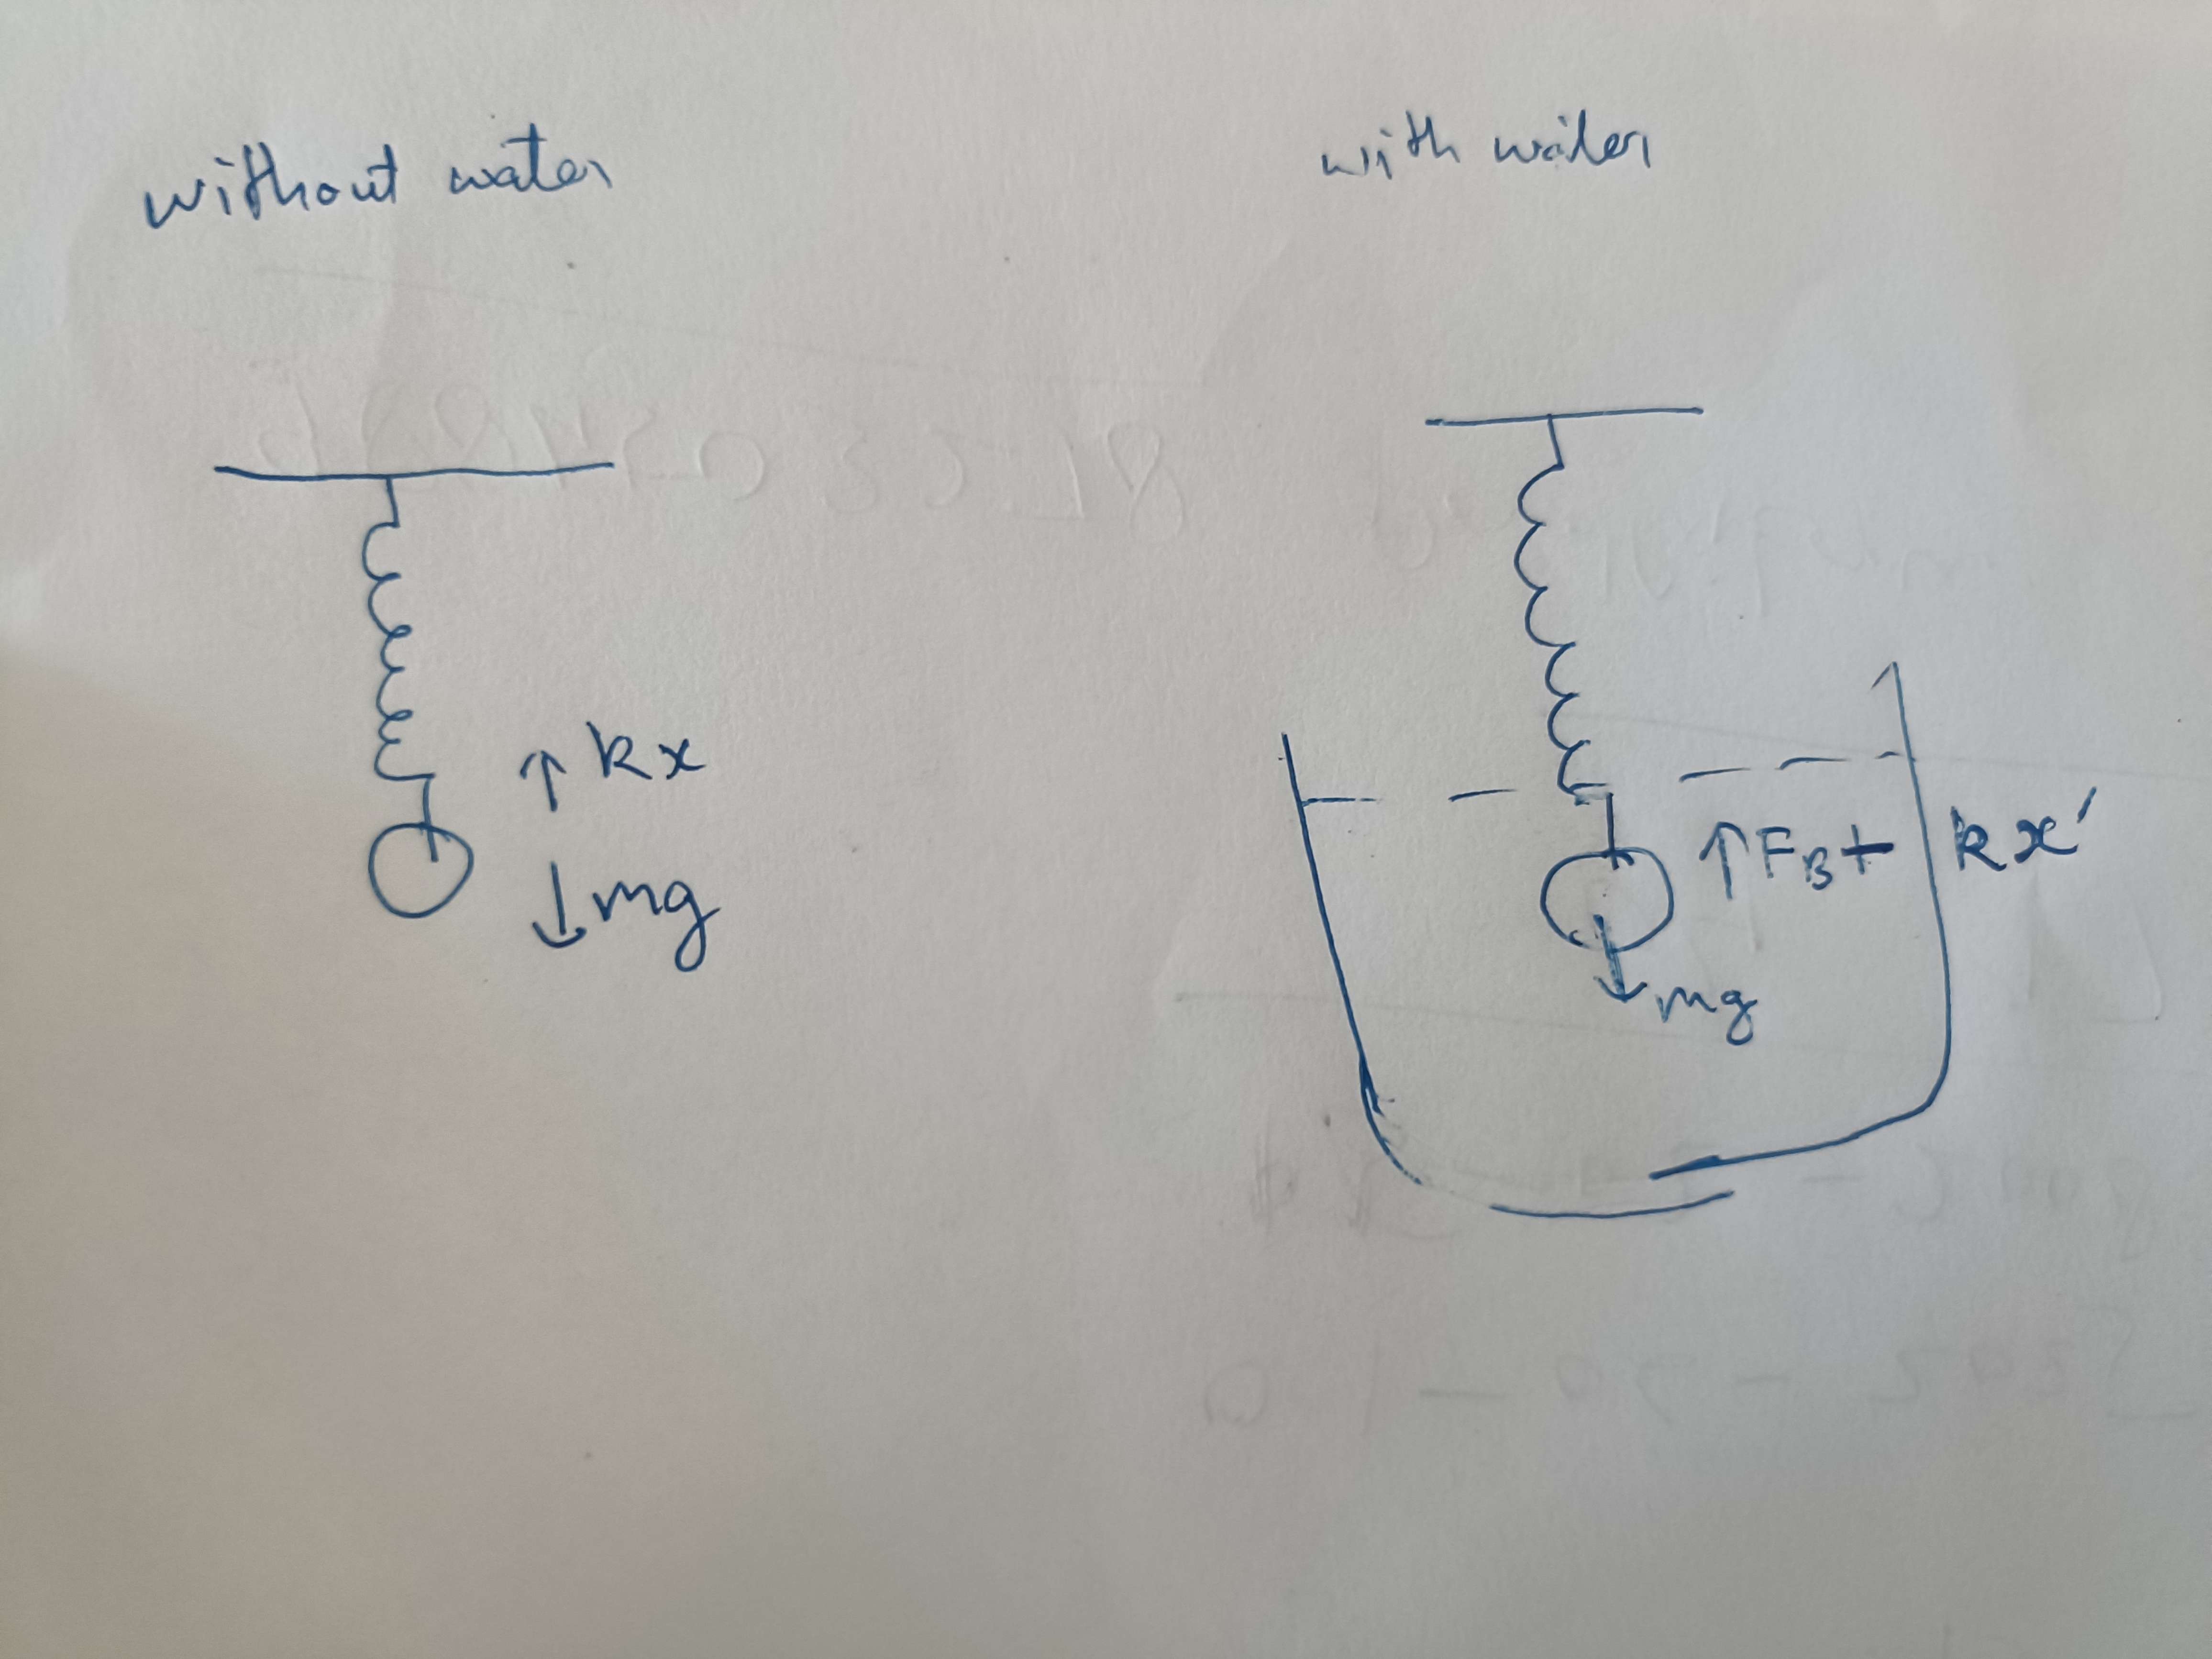 without water
with water
↑ kx
↓ mg
↑ F_B + kx'
↓ mg